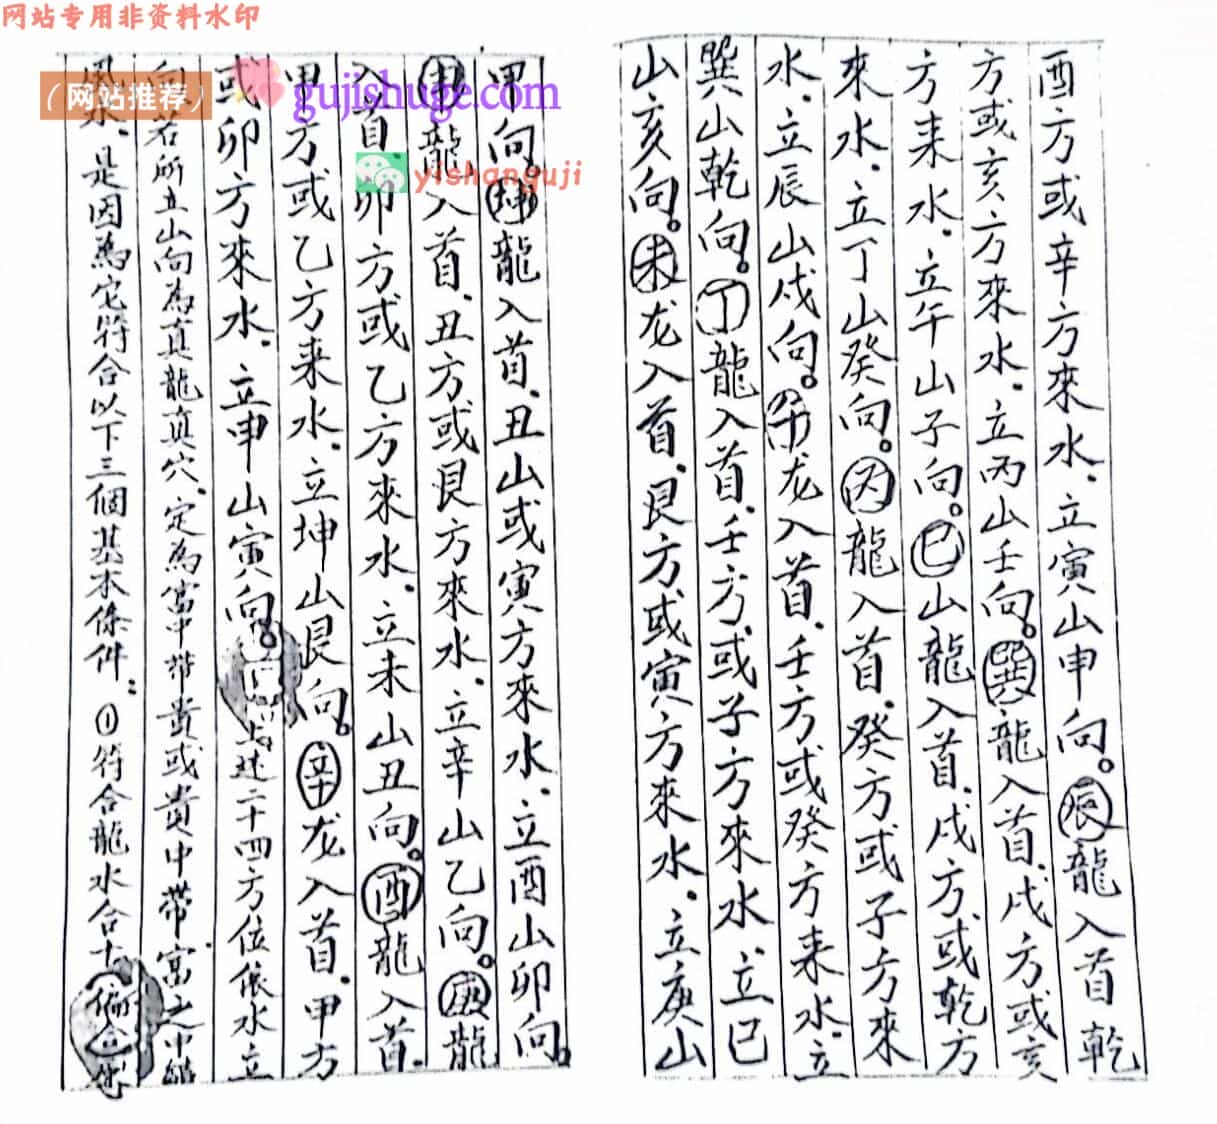 网站专用非资料水印
酉方或辛方來水．立寅山申向。辰龍入首乾
方或亥方來水．立丙山壬向。巽龍入首．戌方或亥
方来水．立午山子向。巳山龍入首．戌方或乾方
來水．立丁山癸向。丙龍入首．癸方或子方來
水．立辰山戌向。午龙入首．壬方或癸方来水．立
巽山乾向。丁龍入首．壬方．或子方來水．立巳
山亥向。未龙入首．艮方．或寅方來水．立庚山
甲向。坤龍入首．丑山或寅方來水．立酉山卯向。
申龍入首．丑方或艮方來水．立辛山乙向。庚龍
入首．卯方或乙方來水．立未山丑向。酉龍入首．
甲方或乙方来水．立坤山艮向。辛龙入首．甲方
或卯方來水．立申山寅向。上述二十四方位依水立
向．若所立山向為真龍真穴．定為富中帶貴或貴中帶富之
風水．是因為它符合以下三個基本條件：①符合龍水合十
（网站推荐）
gujishuge.com
yishanguji